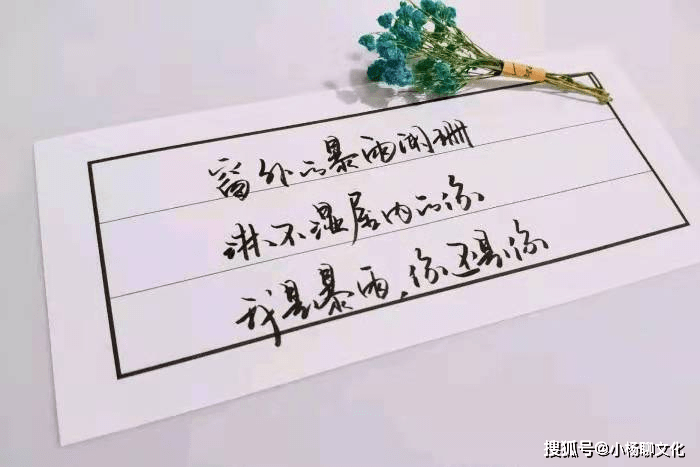 窗外的暴雨阑珊
淋不湿屋内的你
我是暴雨,你还是你
搜狐号@小杨聊文化